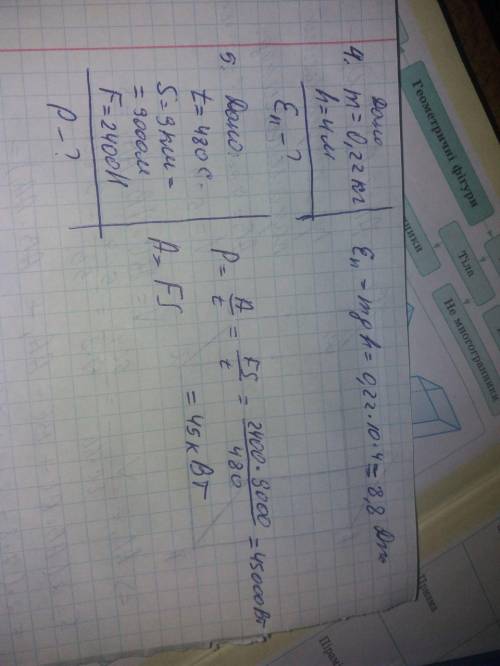 4. Дано
m = 0,22 кг
h = 4 м
Eп - ?
Eп = mgh = 0,22·10·4 = 8,8 Дж
5. Дано
t = 480 с.
S = 9 км =
= 9000 м
F = 2400 Н
P - ?
P = A/t = FS/t = 2400·9000/480 = 45000 Вт
= 45 кВт
A = FS
Геометричні фігури
Тіла
Не многогранники
Пряма